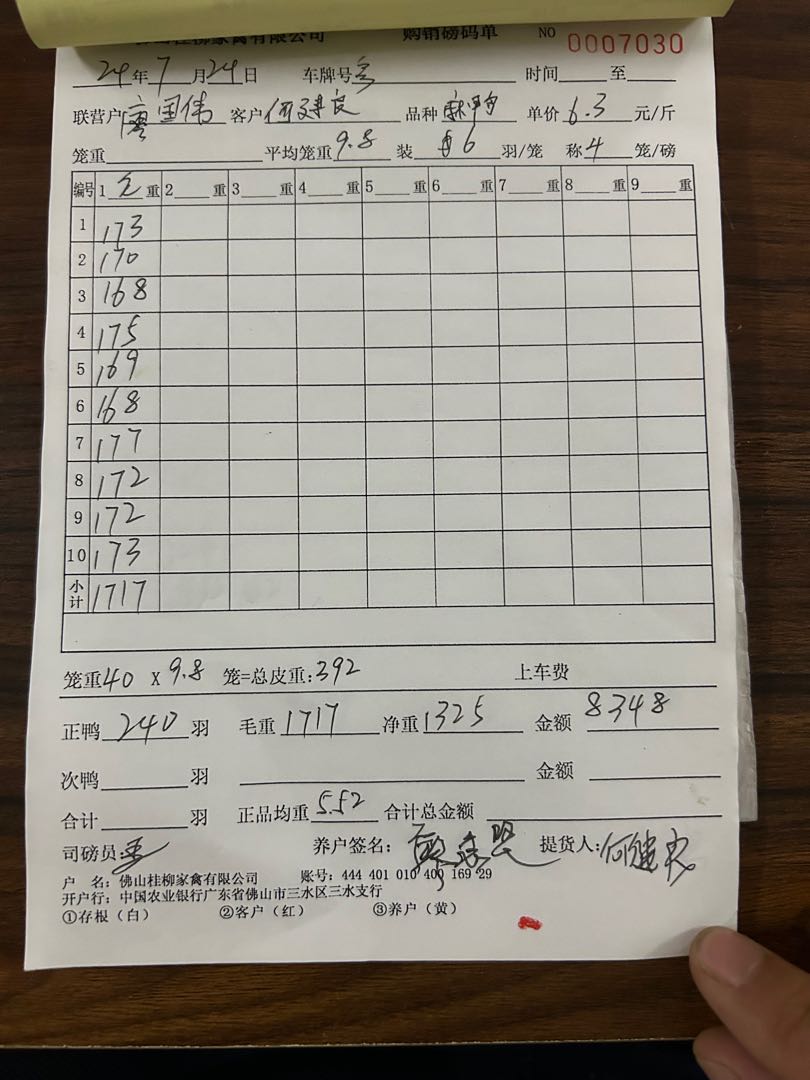 佛山桂柳家禽有限公司 购销磅码单 NO 0007030
24年7月24日 车牌号 时间 至
联营户 廖国伟 客户 何建良 品种 麻鸭 单价 6.3 元/斤
笼重 平均笼重 9.8 装 6 羽/笼 称 4 笼/磅
编号 1 毛 重 2 重 3 重 4 重 5 重 6 重 7 重 8 重 9 重
1 173
2 170
3 168
4 175
5 169
6 168
7 177
8 172
9 172
10 173
小计 1717
笼重 40 X 9.8 笼=总皮重:392 上车费
正鸭 240 羽 毛重 1717 净重 1325 金额 8348
次鸭 羽 金额
合计 羽 正品均重 5.52 合计总金额
司磅员: 养户签名: 提货人:
户 名:佛山桂柳家禽有限公司 账号:444 401 010 400 169 29
开户行:中国农业银行广东省佛山市三水区三水支行
①存根(白) ②客户(红) ③养户(黄)